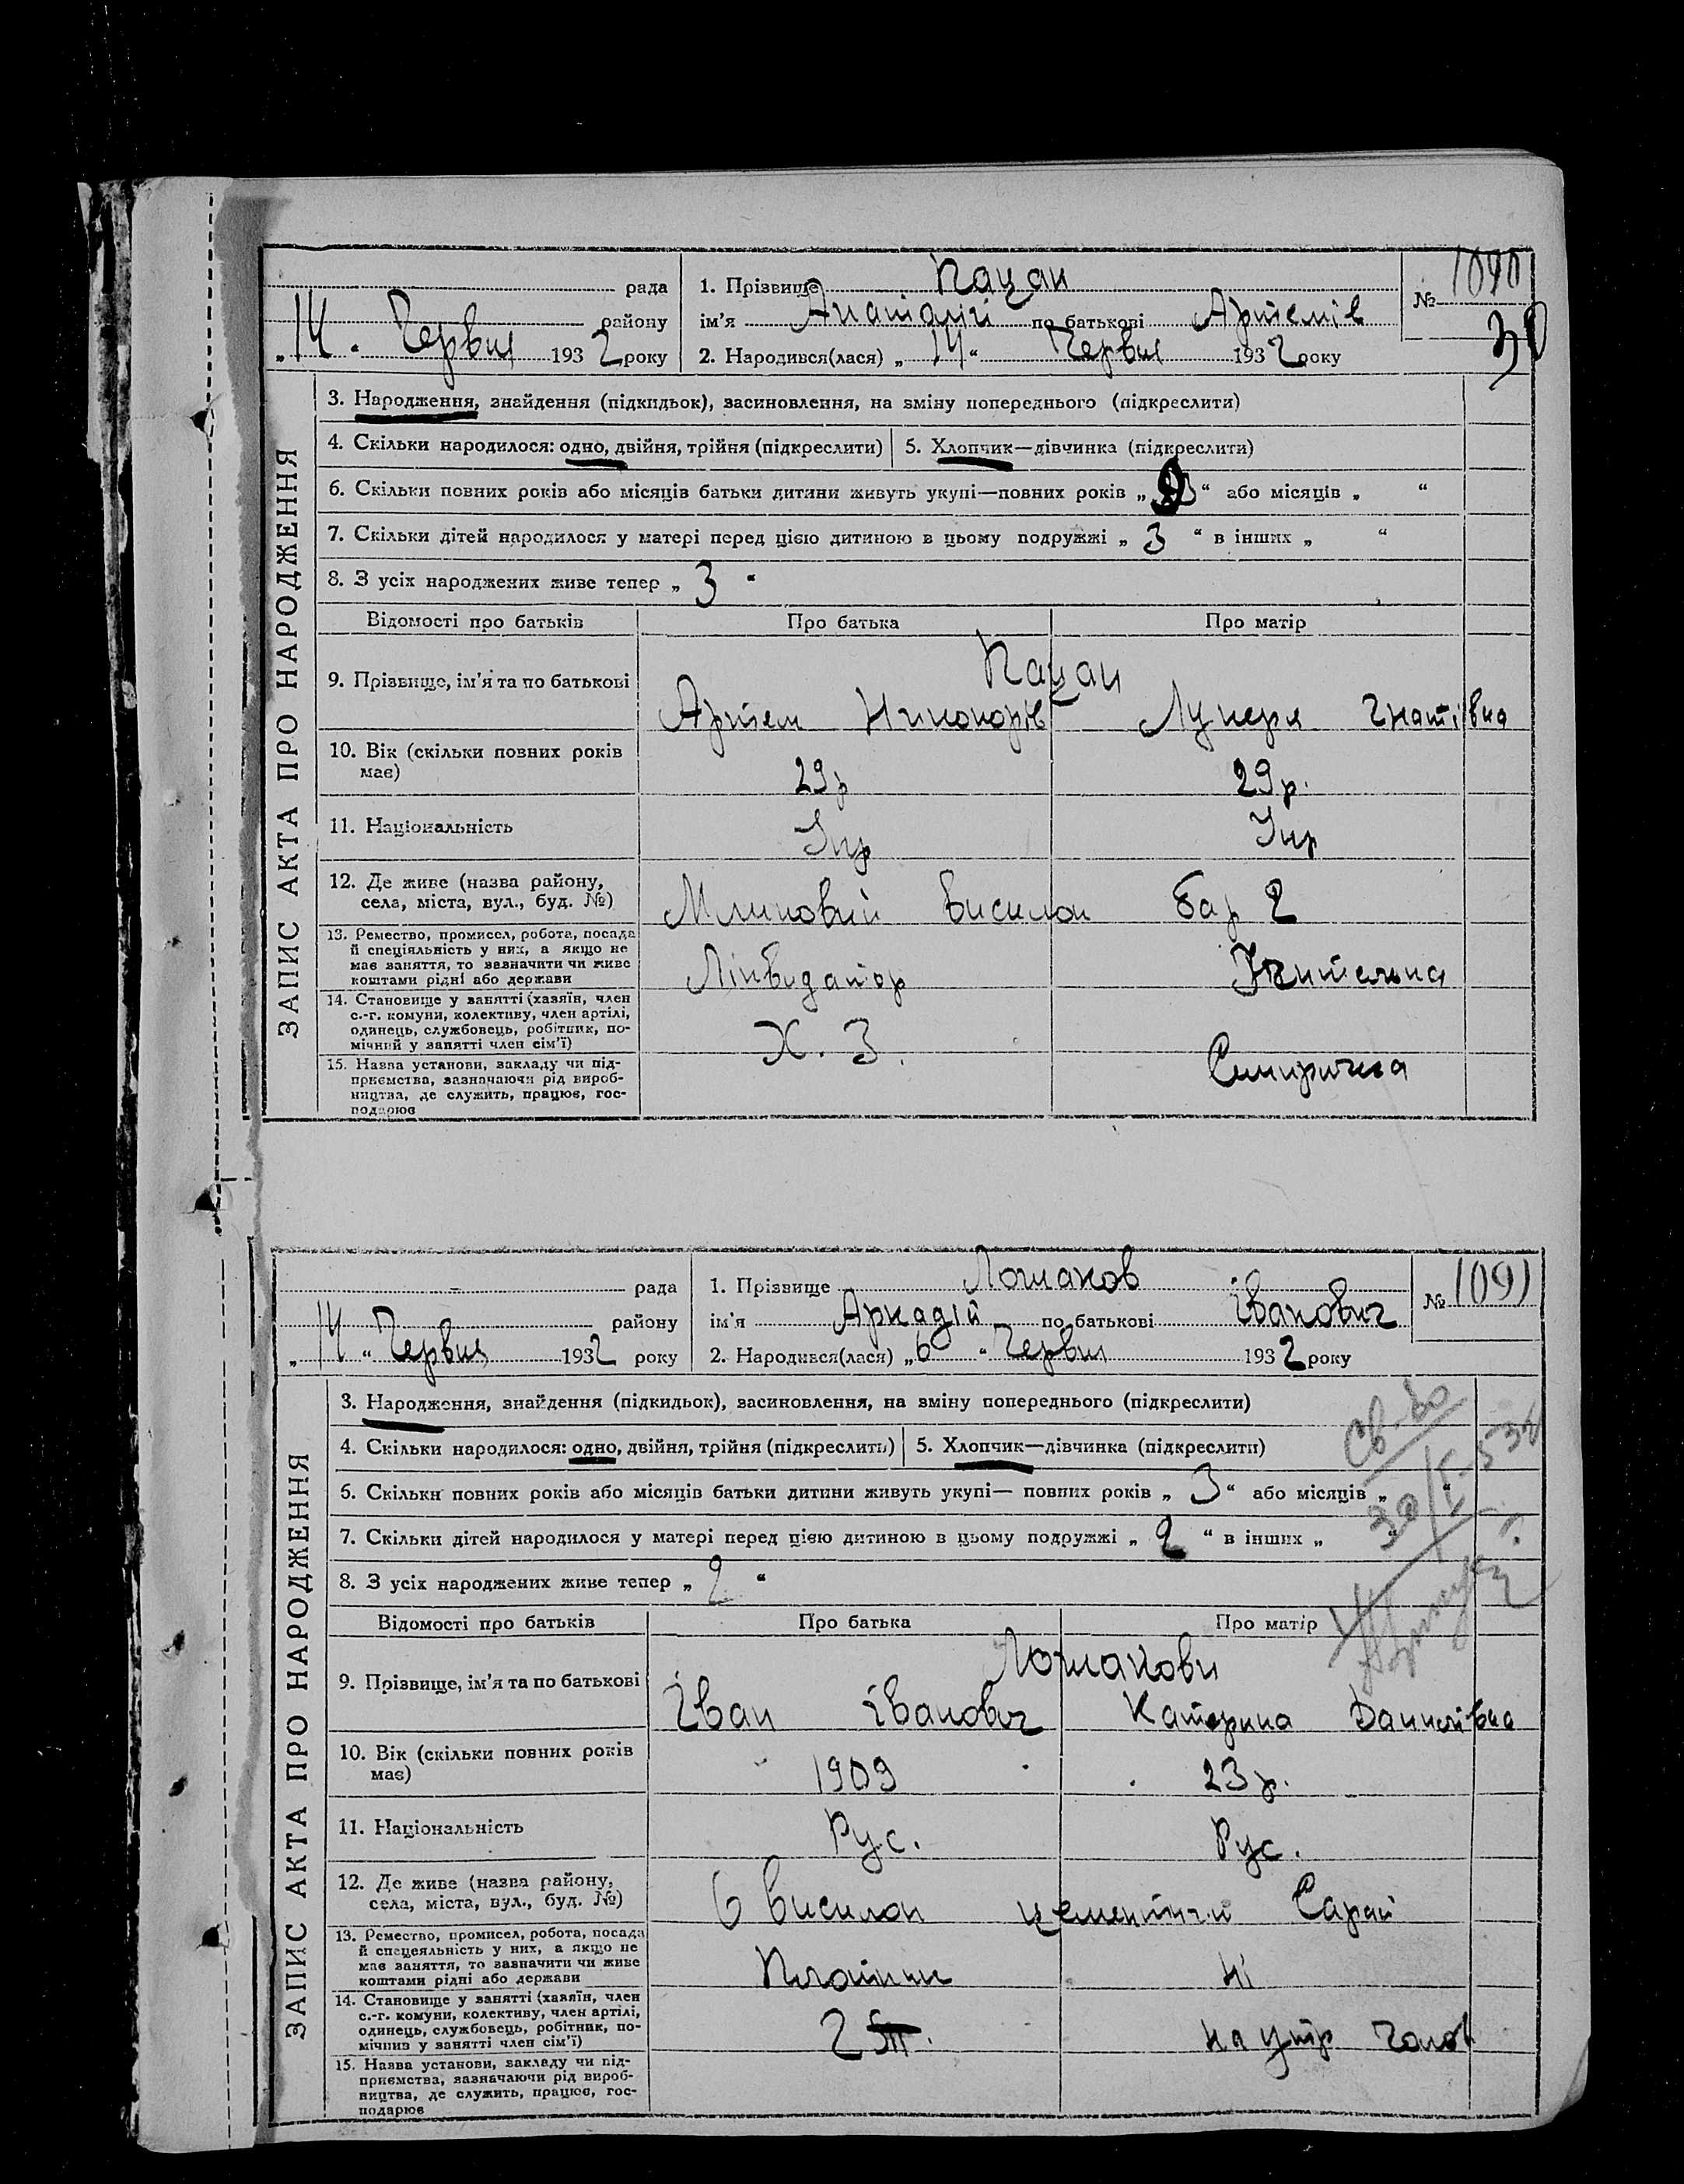 рада
району
„14“ Червня 1932 року
1. Прізвище Кацан
ім'я Анатолій по батькові Артемів
2. Народився(лася) „14“ Червня 1932 року
№ 1090
30
ЗАПИС АКТА ПРО НАРОДЖЕННЯ
3. Народження, знайдення (підкидьок), засиновлення, на зміну попереднього (підкреслити)
4. Скільки народилося: одно, двійня, трійня (підкреслити) 5. Хлопчик—дівчинка (підкреслити)
6. Скільки повних років або місяців батьки дитини живуть укупі—повних років „ “ або місяців „ “
7. Скільки дітей народилося у матері перед цією дитиною в цьому подружжі „3“ в інших „ “
8. З усіх народжених живе тепер „3“
Відомості про батьків Про батька Про матір
9. Прізвище, ім'я та по батькові
Кацан
Артем Никонорів Лукеря Гнатівна
10. Вік (скільки повних років має) 29р 29р.
11. Національність Укр Укр
12. Де живе (назва району, села, міста, вул., буд. №) Млиновий висилок бар 2
13. Ремество, промисел, робота, посада й спеціяльність у них, а якщо не має заняття, то зазначити чи живе коштами рідні або держави Ліквидатор Учителька
14. Становище у занятті (хазяїн, член с.-г. комуни, колективу, член артілі, одинець, службовець, робітник, помічний у занятті член сім'ї) Х. З.
15. Назва установи, закладу чи підприємства, зазначаючи рід виробництва, де служить, працює, господарює
рада
району
„14“ Червня 1932 року
1. Прізвище Лошаков
ім'я Аркадій по батькові Іванович
2. Народився(лася) „6“ Червня 1932 року
№ 1091
ЗАПИС АКТА ПРО НАРОДЖЕННЯ
3. Народження, знайдення (підкидьок), засиновлення, на зміну попереднього (підкреслити)
4. Скільки народилося: одно, двійня, трійня (підкреслить) 5. Хлопчик—дівчинка (підкреслити)
6. Скільки повних років або місяців батьки дитини живуть укупі— повних років „3“ або місяців „ “
7. Скільки дітей народилося у матері перед цією дитиною в цьому подружжі „2“ в інших „ “
8. З усіх народжених живе тепер „2“
Св-во
30/I-53г
Відомості про батьків Про батька Про матір
9. Прізвище, ім'я та по батькові
Лошакови
Іван Іванович Катерина Данилівна
10. Вік (скільки повних років має) 1909 23р.
11. Національність Рус. Рус.
12. Де живе (назва району, села, міста, вул., буд. №) 6 висилок цементний Сарай
13. Ремество, промисел, робота, посада й спецеяльність у них, а якщо не має заняття, то зазначити чи живе коштами рідні або держави Плотник Ні
14. Становище у занятті (хазяїн, член с.-г. комуни, колективу, член артілі, одинець, службовець, робітник, помічниз у занятті член сім'ї) на утр чолов
15. Назва установи, закладу чи підприємства, зазначаючи рід виробництва, де служить, працює, господарює